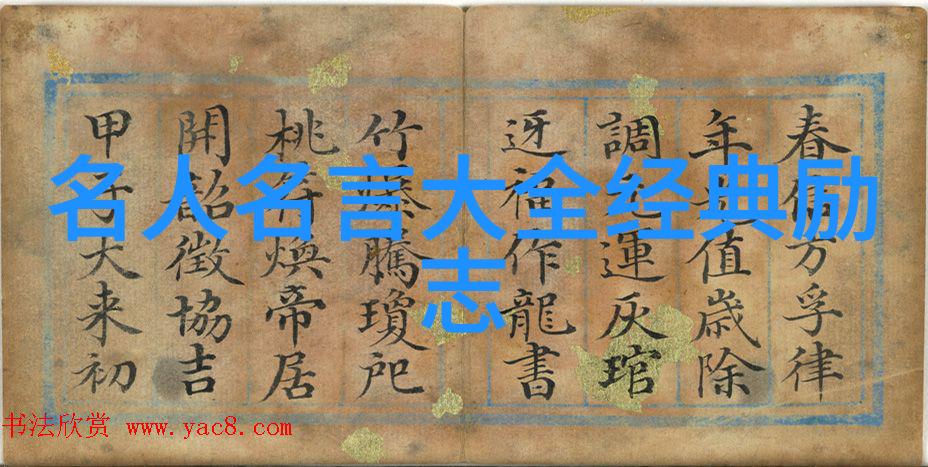 名人名言大全经典励
志
春信方孚律
年值歲除
調元運灰琯
迓福作龍書
竹騰瓊戺
桃符煥帝居
開韶徵協吉
甲子大来初
书法欣赏 www.yac8.com